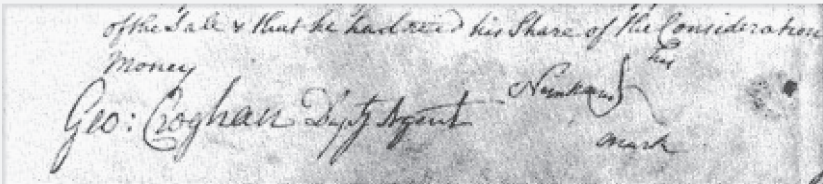 of the Sale & that he had recd his Share of the Consideration
Money
his
Geo: Croghan Depty Agent
mark